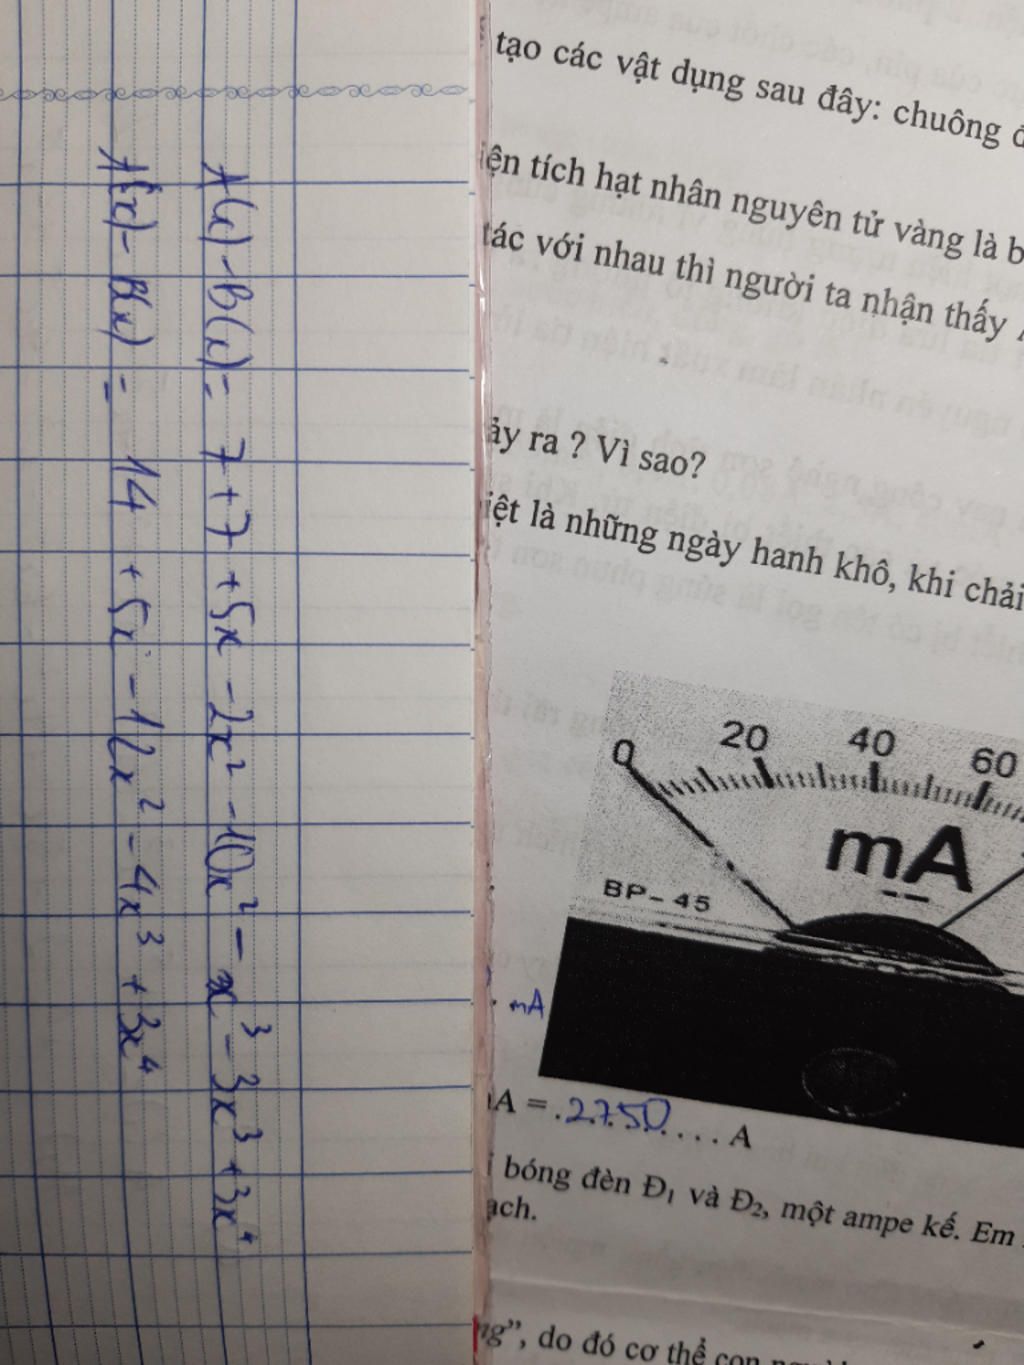 A(x) - B(x) = 7 + 7 + 5x - 2x² - 10x² - x³ - 3x³ + 3x⁴
A(x) - B(x) = 14 + 5x - 12x² - 4x³ + 3x⁴
tạo các vật dụng sau đây: chuông
tích hạt nhân nguyên tử vàng là
tác với nhau thì người ta nhận thấy
ra ? Vì sao?
là những ngày hanh khô, khi chải
0 20 40 60
mA
BP-45
mA
A = .2750.... A
bóng đèn Đ₁ và Đ₂, một ampe kế. Em
”, do đó cơ thể con